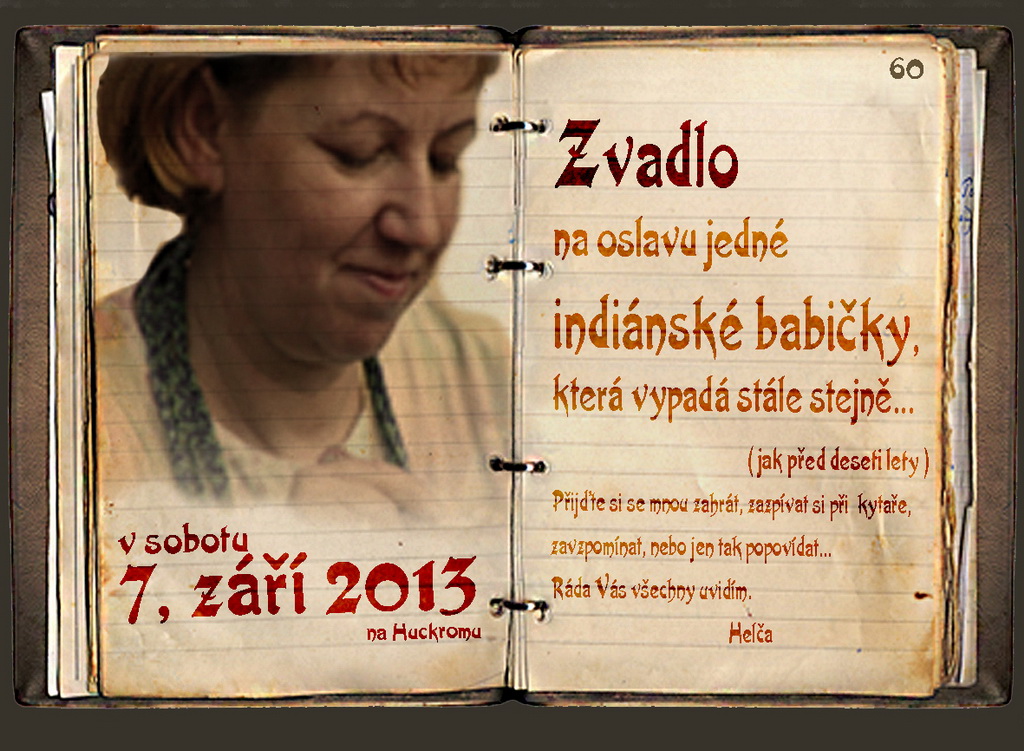 v sobotu
7, září 2013
na Huckromu
60
Zvadlo
na oslavu jedné
indiánské babičky,
která vypadá stále stejně...
(jak před deseti lety)
Přijďte si se mnou zahrát, zazpívat si při kytaře,
zavzpomínat, nebo jen tak popovídat...
Ráda Vás všechny uvidím.
Helča